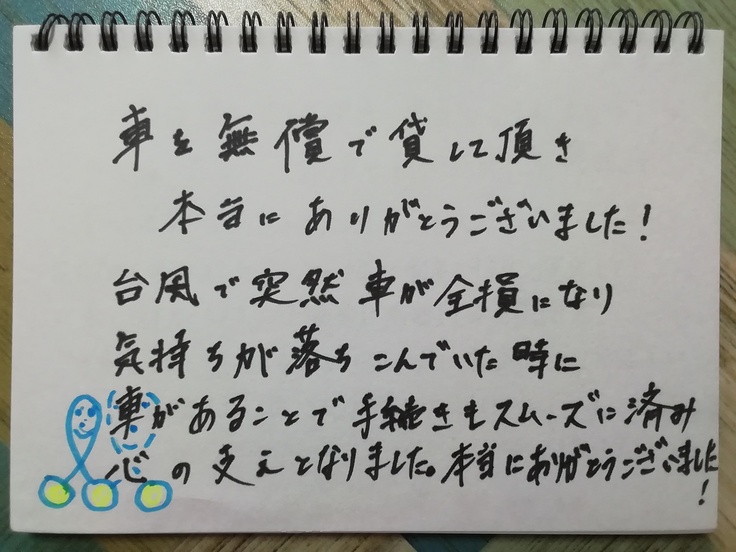 車を無償で貸して頂き
本当にありがとうございました!
台風で突然車が全損になり
気持ちが落ちこんでいた時に
車があることで手続きもスムーズに済み
心の支えとなりました。本当にありがとうございました!